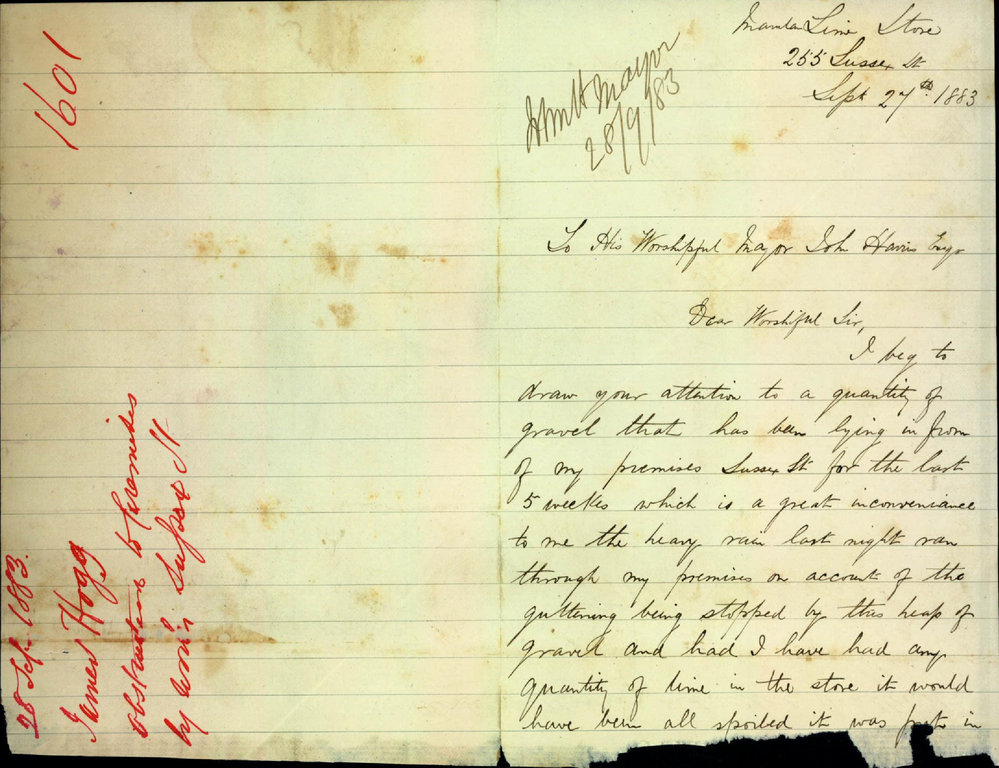 1601
28 Sep. 1883.
James Hogg
Obstructions to Premises
by Sussex St
Lime Store
255 Sussex St
Sept 27th 1883
Mayor
28/9/83
To His Worshipful Mayor John Harris Esqr
Dear Worshiful Sir,
I beg to
draw your attention to a quantity of
gravel that has been lying in from
of my premises Sussex St for the last
5 weekes which is a great inconveniance
to me the heavy rain last night ran
through my premises on account of the
guttening being stopped by this heap of
gravel and had I have had any
quantity of lime in the store it would
have been all spoiled it was put in